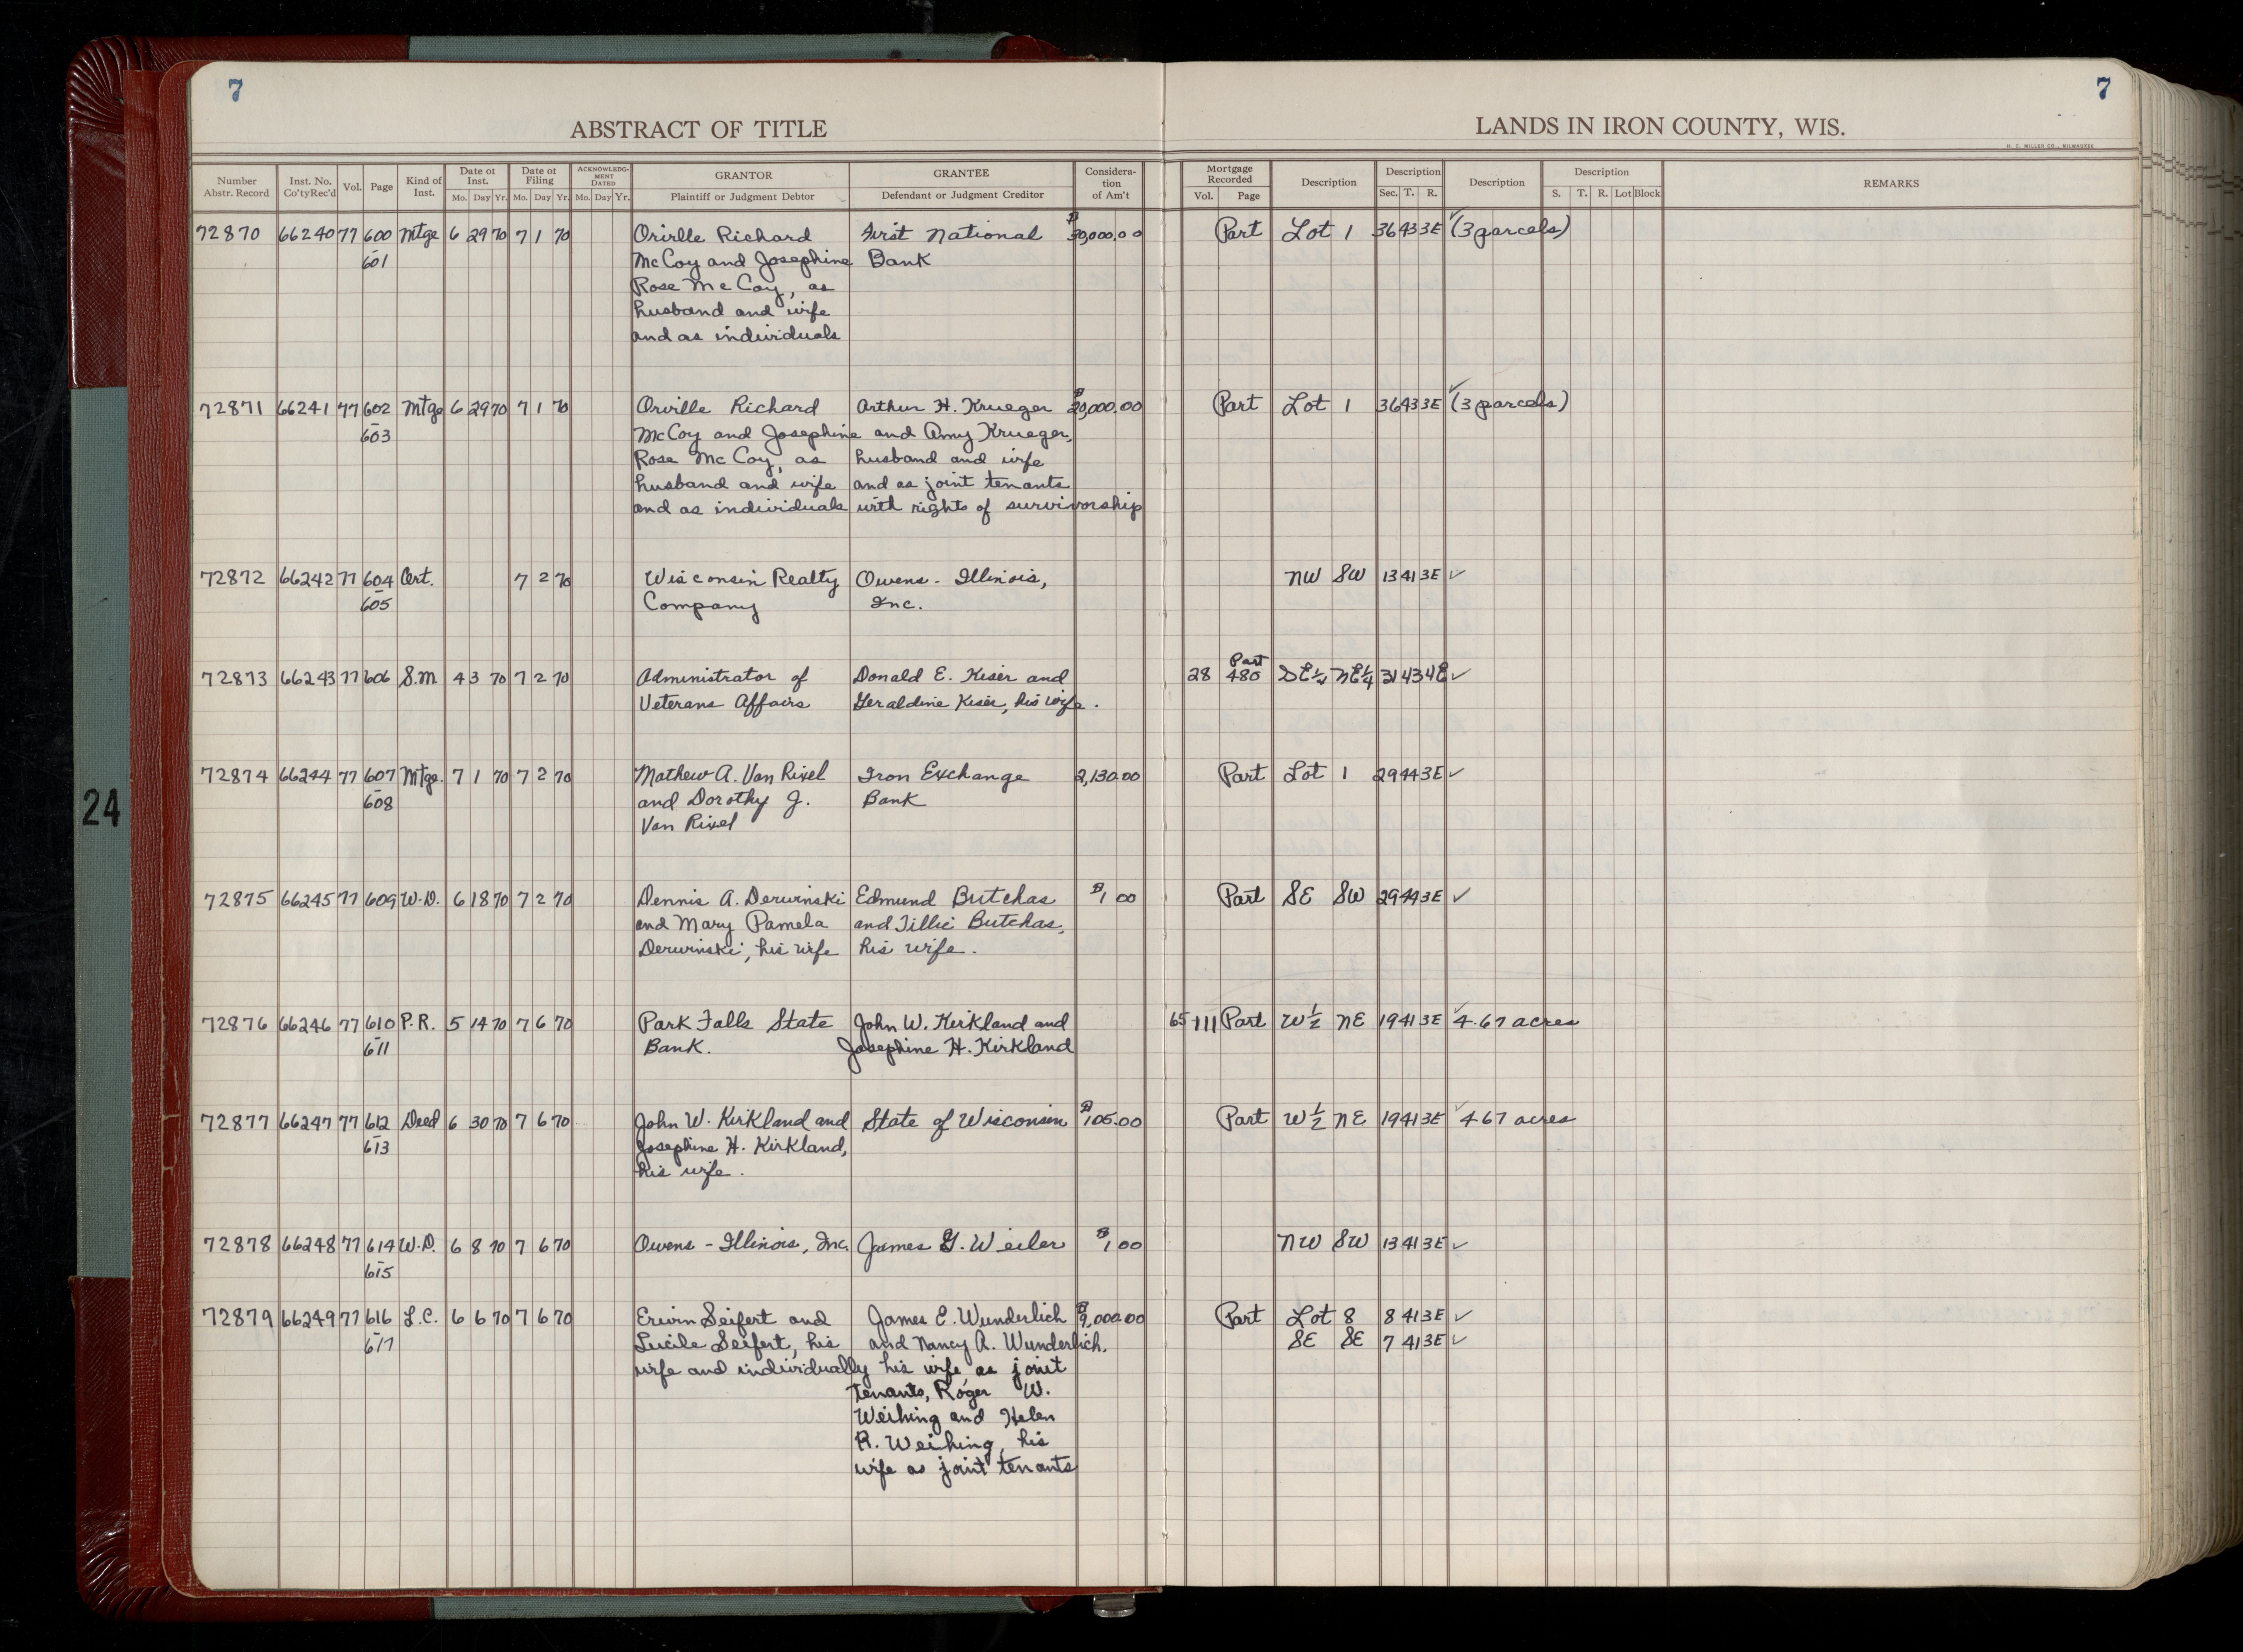 7
7
ABSTRACT OF TITLE
LANDS IN IRON COUNTY, WIS.
H. C. MILLER CO., MILWAUKEE
Number Abstr. Record Inst. No. Co'ty Rec'd Vol. Page Kind of Inst. Date of Inst. Mo. Day Yr. Date of Filing Mo. Day Yr. ACKNOWLEDGMENT DATED Mo. Day Yr. GRANTOR Plaintiff or Judgment Debtor GRANTEE Defendant or Judgment Creditor Consideration of Am't Mortgage Recorded Vol. Page Description Description Sec. T. R. Description Description S. T. R. Lot Block REMARKS
72870 66240 77 600 Mtge 6 29 70 7 1 70 Orville Richard First National $30,000.00 Part Lot 1 36 43 3E ✓ (3 parcels)
601 McCoy and Josephine Bank
Rose McCoy, as
husband and wife
and as individuals
72871 66241 77 602 Mtge 6 29 70 7 1 70 Orville Richard Arthur H. Krueger $20,000.00 Part Lot 1 36 43 3E ✓ (3 parcels)
603 McCoy and Josephine and Amy Krueger,
Rose McCoy, as husband and wife
husband and wife and as joint tenants
and as individuals with rights of survivorship
72872 66242 77 604 Cert. 7 2 70 Wisconsin Realty Owens - Illinois, NW SW 13 41 3E ✓
605 Company Inc.
Part
72873 66243 77 606 S.M. 4 3 70 7 2 70 Administrator of Donald E. Kiser and 28 480 SE¼ NE¼ 31 43 4E ✓
Veterans Affairs Geraldine Kiser, his wife.
72874 66244 77 607 Mtge. 7 1 70 7 2 70 Mathew A. Van Rixel Iron Exchange 2,130.00 Part Lot 1 29 44 3E ✓
608 and Dorothy J. Bank
Van Rixel
72875 66245 77 609 W.D. 6 18 70 7 2 70 Dennis A. Derwinski Edmund Butchas $1 00 Part SE SW 29 44 3E ✓
and Mary Pamela and Tillie Butchas,
Derwinski, his wife his wife.
72876 66246 77 610 P.R. 5 14 70 7 6 70 Park Falls State John W. Kirkland and 65 111 Part W½ NE 19 41 3E ✓ 4.67 acres
611 Bank. Josephine H. Kirkland
72877 66247 77 612 Deed 6 30 70 7 6 70 John W. Kirkland and State of Wisconsin $105.00 Part W½ NE 19 41 3E ✓ 4.67 acres
613 Josephine H. Kirkland,
his wife.
72878 66248 77 614 W.D. 6 8 70 7 6 70 Owens - Illinois, Inc. James G. Weiler $1 00 NW SW 13 41 3E ✓
615
72879 66249 77 616 L.C. 6 6 70 7 6 70 Erwin Seifert and James E. Wunderlich $9,000.00 Part Lot 8 8 41 3E ✓
617 Lucile Seifert, his and Nancy A. Wunderlich, SE SE 7 41 3E ✓
wife and individually his wife, as joint
tenants, Roger W.
Weihing and Helen
R. Weihing, his
wife as joint tenants
24